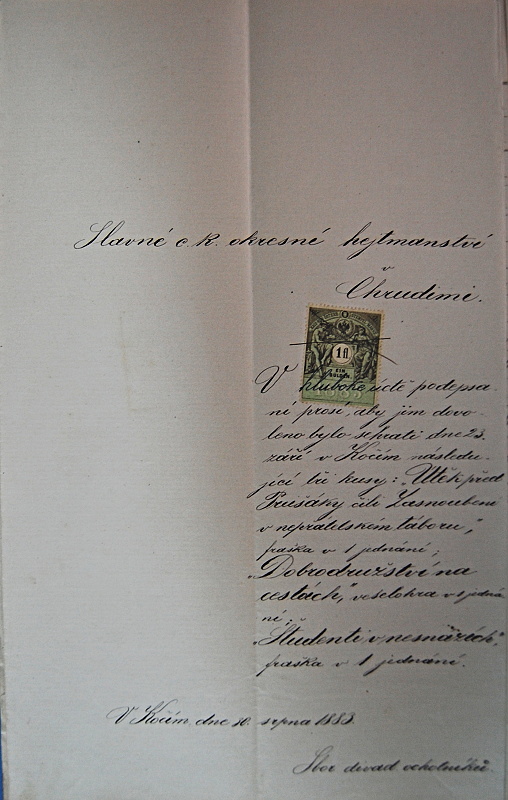 Slavné c. k. okresné hejtmanství
v
Chrudimi.
1 fl
EIN
GULDEN
1883
V hluboké úctě podepsa-
ní prosí, aby jim dovo-
leno bylo sehrati dne 23.
září v Kočím následu-
jící tři kusy: „Útěk před
Prušáky čili Zasnoubení
v nepřátelském táboru",
fraška v 1 jednání;
„Dobrodružství na
cestách", veselohra v 1 jedná-
ní;
„Študenti v nesnázích",
fraška v 1 jednání.
V Kočím, dne 30. srpna 1883.
Sbor divad. ochotníků.